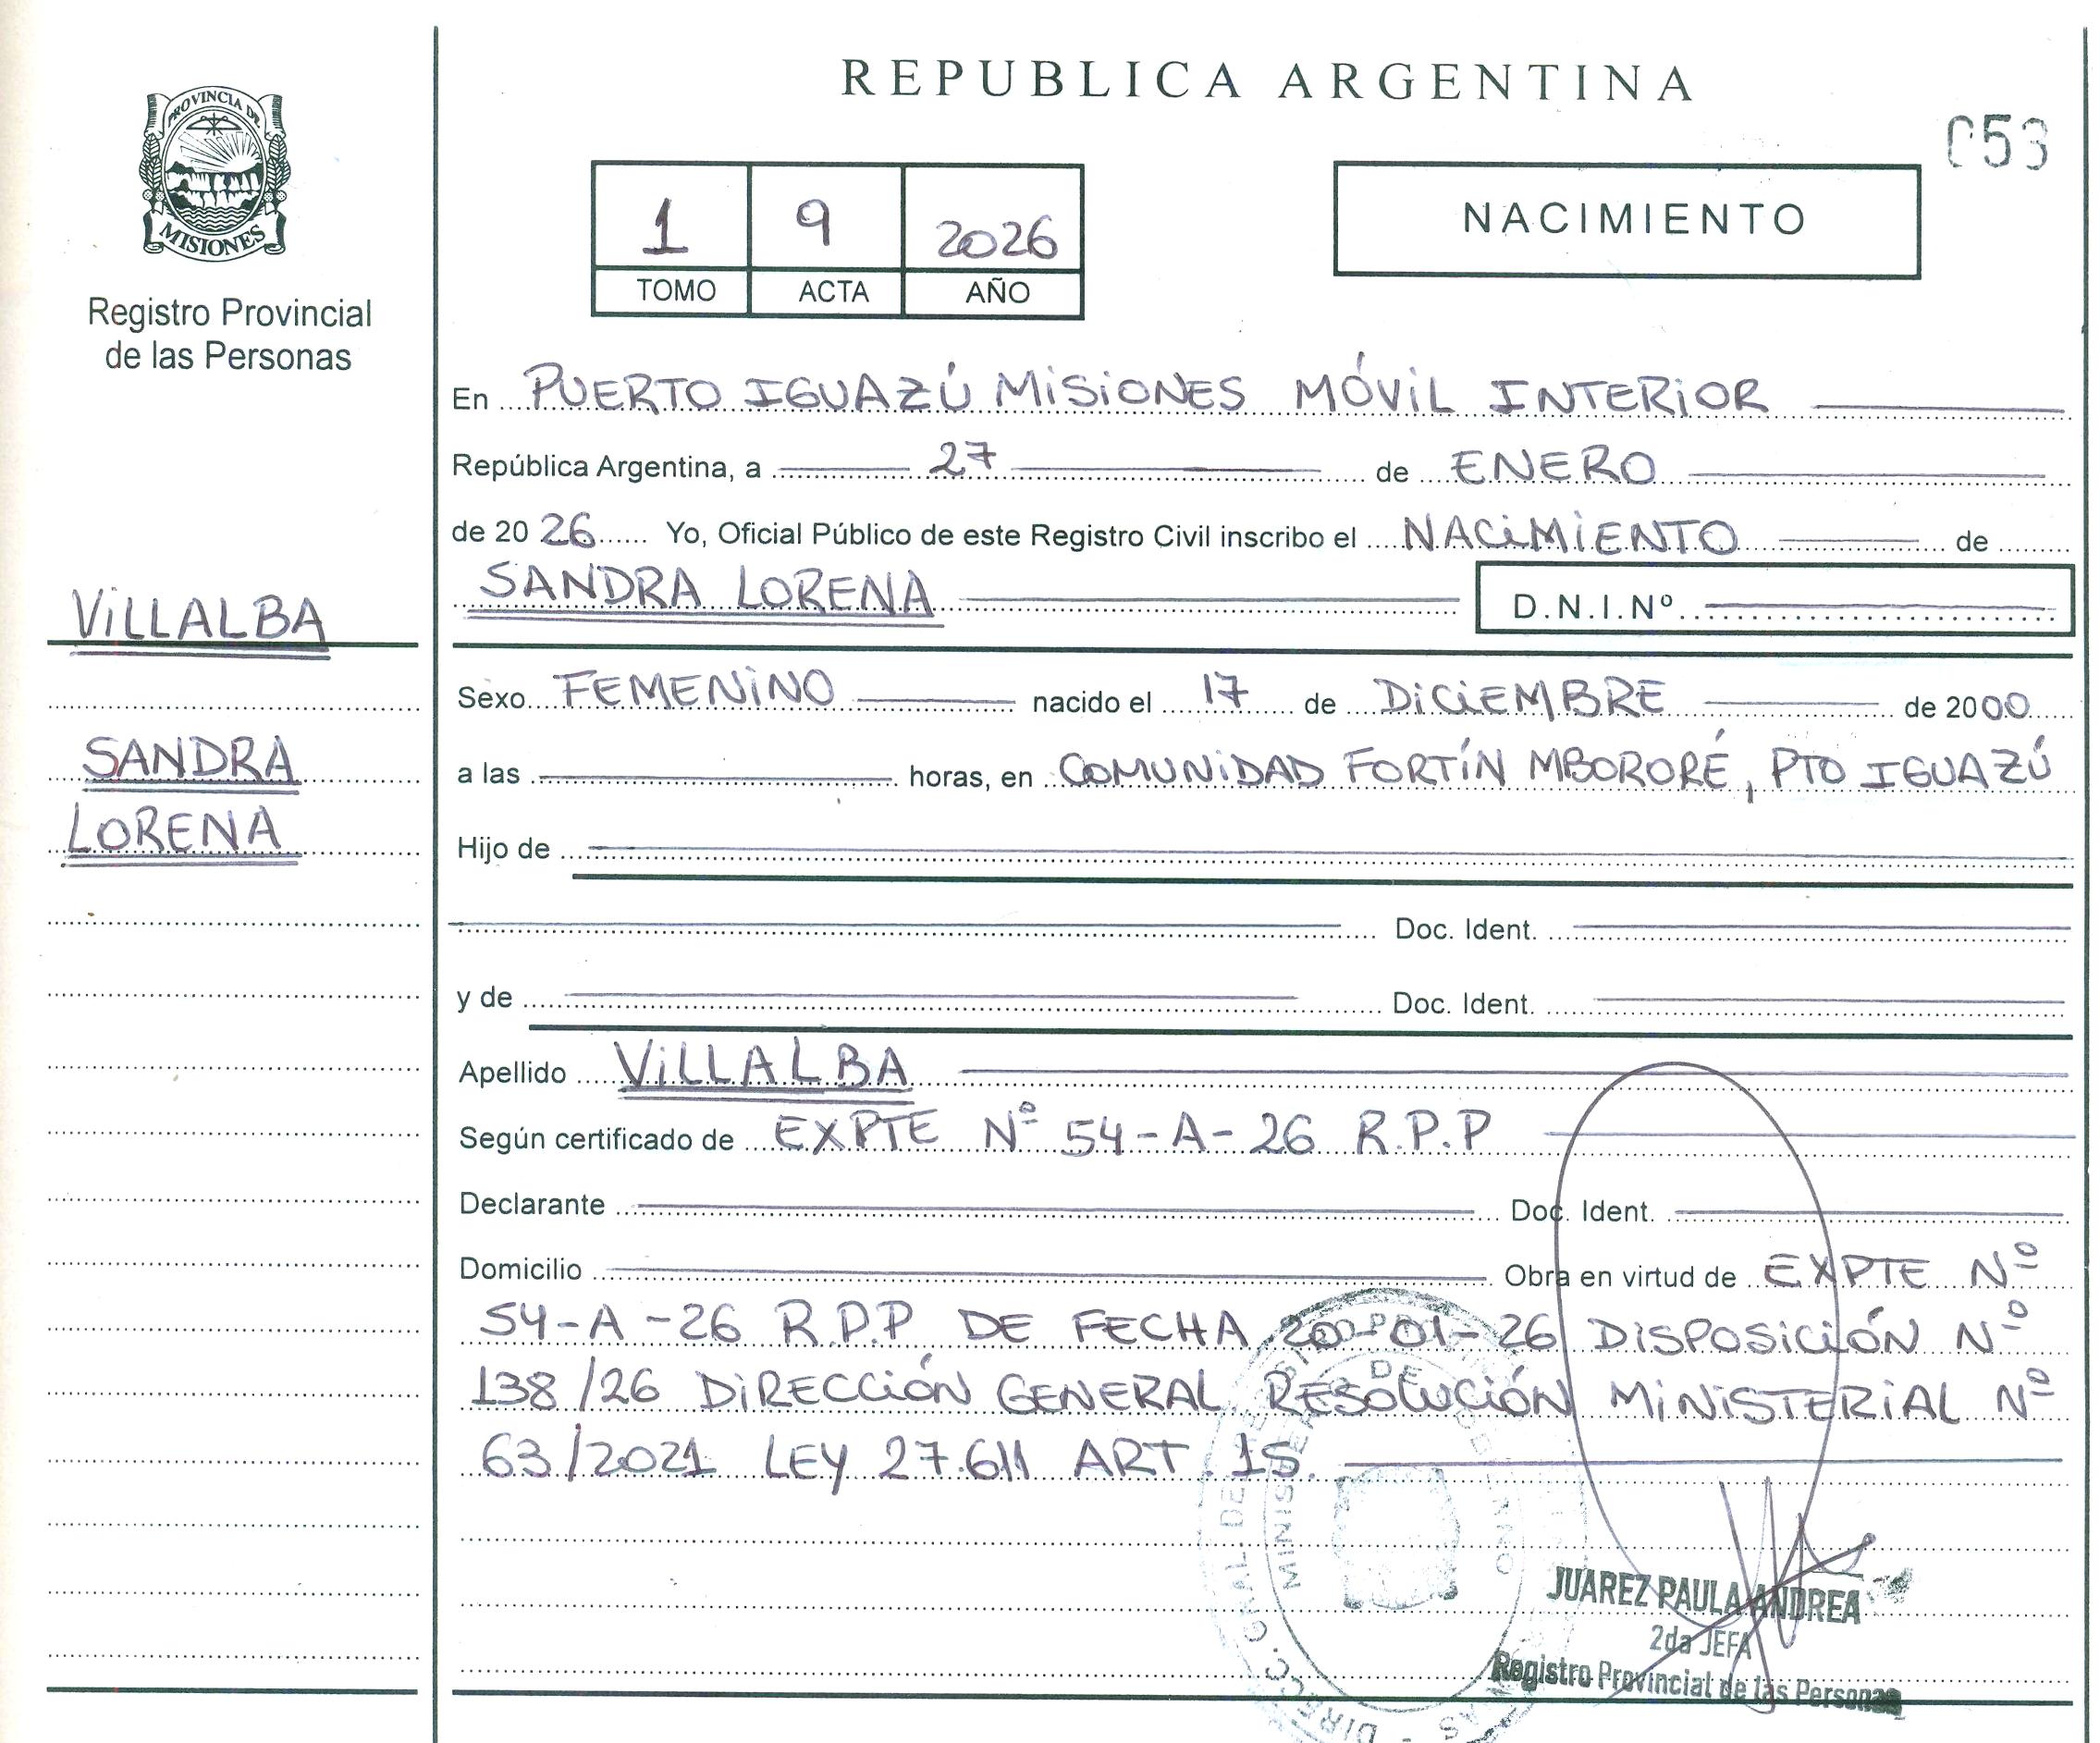 REPUBLICA ARGENTINA
053
PROVINCIA DE
MISIONES
Registro Provincial
de las Personas
1 9 2026
TOMO ACTA AÑO
NACIMIENTO
En PUERTO IGUAZÚ MISIONES MÓVIL INTERIOR
República Argentina, a 27 de ENERO
de 2026 Yo, Oficial Público de este Registro Civil inscribo el NACIMIENTO de
SANDRA LORENA D.N.I.Nº
VILLALBA
SANDRA
LORENA
Sexo FEMENINO nacido el 17 de DICIEMBRE de 2000
a las horas, en COMUNIDAD FORTÍN MBORORÉ, PTO IGUAZÚ
Hijo de
Doc. Ident.
y de Doc. Ident.
Apellido VILLALBA
Según certificado de EXPTE Nº 54-A-26 R.P.P
Declarante Doc. Ident.
Domicilio Obra en virtud de EXPTE Nº
54-A-26 R.P.P DE FECHA 20-01-26 DISPOSICIÓN Nº
138/26 DIRECCIÓN GENERAL RESOLUCIÓN MINISTERIAL Nº
63/2021 LEY 27.611 ART. 15.
JUAREZ PAULA ANDREA
2da JEFA
Registro Provincial de las Personas